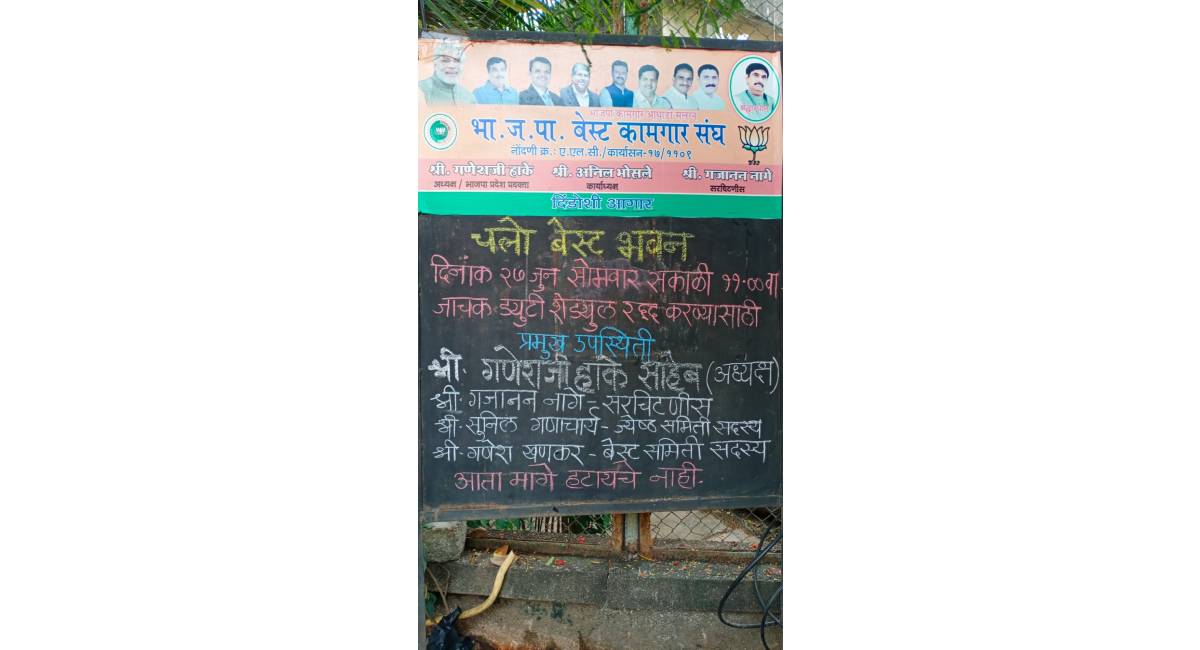 श्रद्धास्थान
भाजपा कामगार आघाडी संलग्न
भा.ज.पा. वेस्ट कामगार संघ
नोंदणी क्र.: ए.एल.सी./कार्यासन-१७/११०९
श्री. गणेशजी हाके श्री. अनिल भोसले श्री. गजानन नागे
अध्यक्ष / भाजपा प्रदेश प्रवक्ता कार्याध्यक्ष सरचिटणीस
दिंडोशी आगार
चलो बेस्ट भवन
दिनांक २७ जुन सोमवार सकाळी ११.०० वा.
जाचक ड्युटी शेड्युल रद्द करण्यासाठी
प्रमुख उपस्थिती
श्री. गणेशजी हाके साहेब (अध्यक्ष)
श्री. गजानन नागे - सरचिटणीस
श्री. सुनिल गणाचार्य - ज्येष्ठ समिती सदस्य
श्री. गणेश खणकर - बेस्ट समिती सदस्य
आता मागे हटायचे नाही.